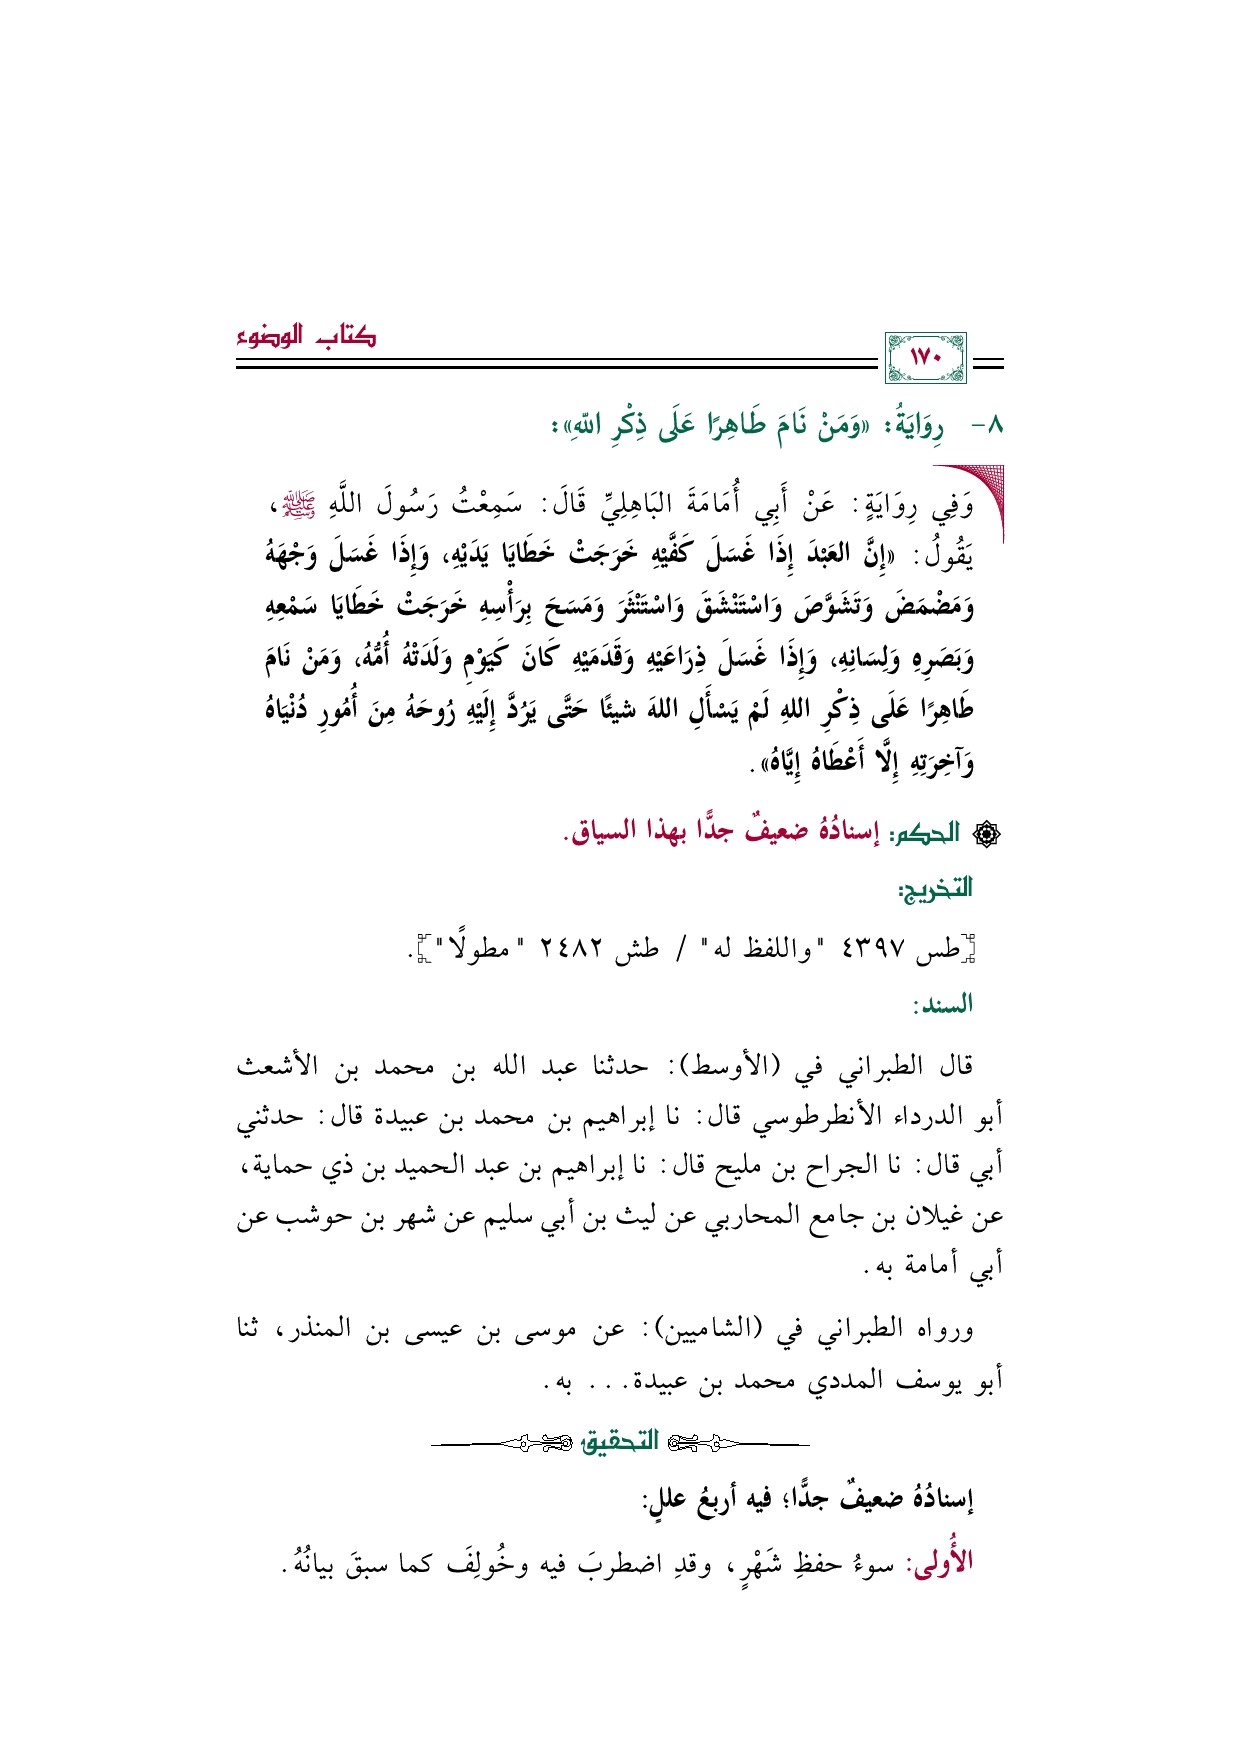 كتاب الوضوء
١٧٠
٨- رِوَايَةُ: «وَمَنْ نَامَ طَاهِرًا عَلَى ذِكْرِ اللهِ»:
وَفِي رِوَايَةٍ: عَنْ أَبِي أُمَامَةَ البَاهِلِيِّ قَالَ: سَمِعْتُ رَسُولَ اللَّهِ ﷺ،
يَقُولُ: «إِنَّ العَبْدَ إِذَا غَسَلَ كَفَّيْهِ خَرَجَتْ خَطَايَا يَدَيْهِ، وَإِذَا غَسَلَ وَجْهَهُ
وَمَضْمَضَ وَتَشَوَّصَ وَاسْتَنْشَقَ وَاسْتَنْثَرَ وَمَسَحَ بِرَأْسِهِ خَرَجَتْ خَطَايَا سَمْعِهِ
وَبَصَرِهِ وَلِسَانِهِ، وَإِذَا غَسَلَ ذِرَاعَيْهِ وَقَدَمَيْهِ كَانَ كَيَوْمِ وَلَدَتْهُ أُمُّهُ، وَمَنْ نَامَ
طَاهِرًا عَلَى ذِكْرِ اللهِ لَمْ يَسْأَلِ اللهَ شيئًا حَتَّى يَرُدَّ إِلَيْهِ رُوحَهُ مِنَ أُمُورِ دُنْيَاهُ
وَآخِرَتِهِ إِلَّا أَعْطَاهُ إِيَّاهُ».
الحكم: إسنادُهُ ضعيفٌ جدًّا بهذا السياق.
التخريج:
[طس ٤٣٩٧ "واللفظ له" / طش ٢٤٨٢ "مطولًا"].
السند:
قال الطبراني في (الأوسط): حدثنا عبد الله بن محمد بن الأشعث
أبو الدرداء الأنطرطوسي قال: نا إبراهيم بن محمد بن عبيدة قال: حدثني
أبي قال: نا الجراح بن مليح قال: نا إبراهيم بن عبد الحميد بن ذي حماية،
عن غيلان بن جامع المحاربي عن ليث بن أبي سليم عن شهر بن حوشب عن
أبي أمامة به.
ورواه الطبراني في (الشاميين): عن موسى بن عيسى بن المنذر، ثنا
أبو يوسف المددي محمد بن عبيدة... به.
التحقيق
إسنادُهُ ضعيفٌ جدًّا؛ فيه أربعُ عللٍ:
الأُولى: سوءُ حفظِ شَهْرٍ، وقدِ اضطربَ فيه وخُولِفَ كما سبقَ بيانُهُ.